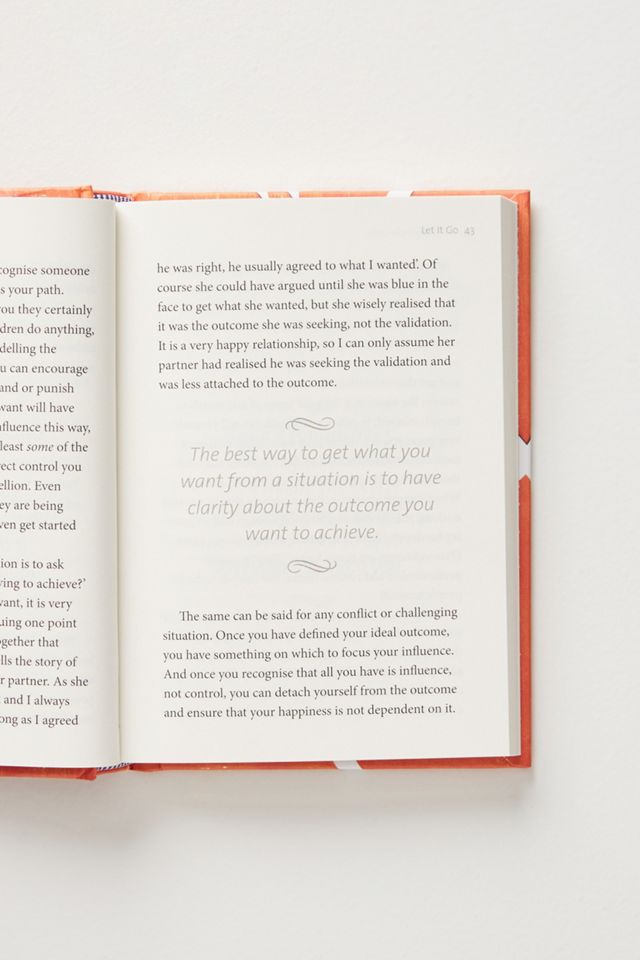 cognise someone
s your path.
you they certainly
dren do anything,
delling the
u can encourage
and or punish
want will have
nfluence this way,
least some of the
rect control you
ellion. Even
ey are being
ven get started
ion is to ask
ying to achieve?'
want, it is very
uing one point
ogether that
lls the story of
r partner. As she
t and I always
ong as I agreed
Let It Go 43
he was right, he usually agreed to what I wanted'. Of
course she could have argued until she was blue in the
face to get what she wanted, but she wisely realised that
it was the outcome she was seeking, not the validation.
It is a very happy relationship, so I can only assume her
partner had realised he was seeking the validation and
was less attached to the outcome.
The best way to get what you
want from a situation is to have
clarity about the outcome you
want to achieve.
The same can be said for any conflict or challenging
situation. Once you have defined your ideal outcome,
you have something on which to focus your influence.
And once you recognise that all you have is influence,
not control, you can detach yourself from the outcome
and ensure that your happiness is not dependent on it.